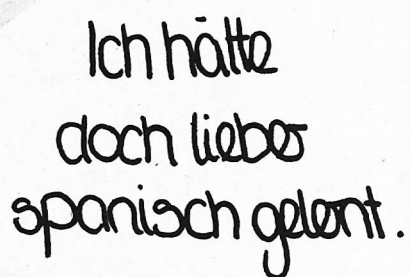 Ich hätte
doch lieber
spanisch gelernt.